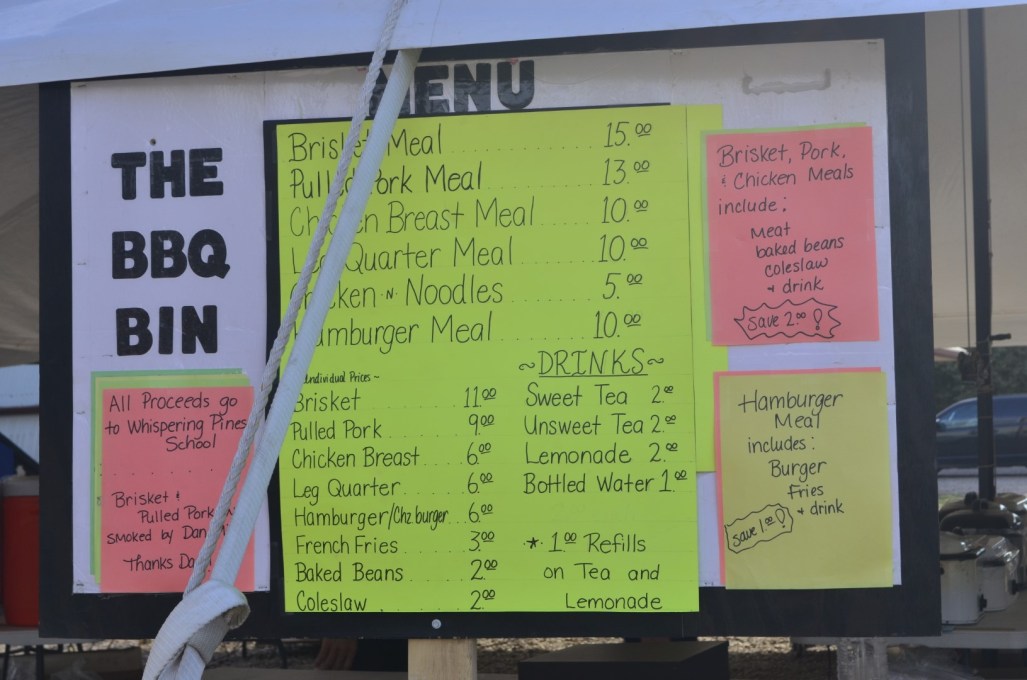 MENU
THE
BBQ
BIN
Brisket Meal 15.00
Pulled Pork Meal 13.00
Chicken Breast Meal 10.00
Leg Quarter Meal 10.00
Chicken N Noodles 5.00
Hamburger Meal 10.00
Individual Prices ~
Brisket 11.00
Pulled Pork 9.00
Chicken Breast 6.00
Leg Quarter 6.00
Hamburger/Chz.burger 6.00
French Fries 3.00
Baked Beans 2.00
Coleslaw 2.00
~DRINKS~
Sweet Tea 2.00
Unsweet Tea 2.00
Lemonade 2.00
Bottled Water 1.00
* 1.00 Refills
on Tea and
Lemonade
All Proceeds go
to Whispering Pines
School
Brisket &
Pulled Pork
smoked by
Thanks
Brisket, Pork,
& Chicken Meals
include:
Meat
baked beans
coleslaw
& drink
Save 2.00!
Hamburger
Meal
includes:
Burger
Fries
& drink
Save 1.00!